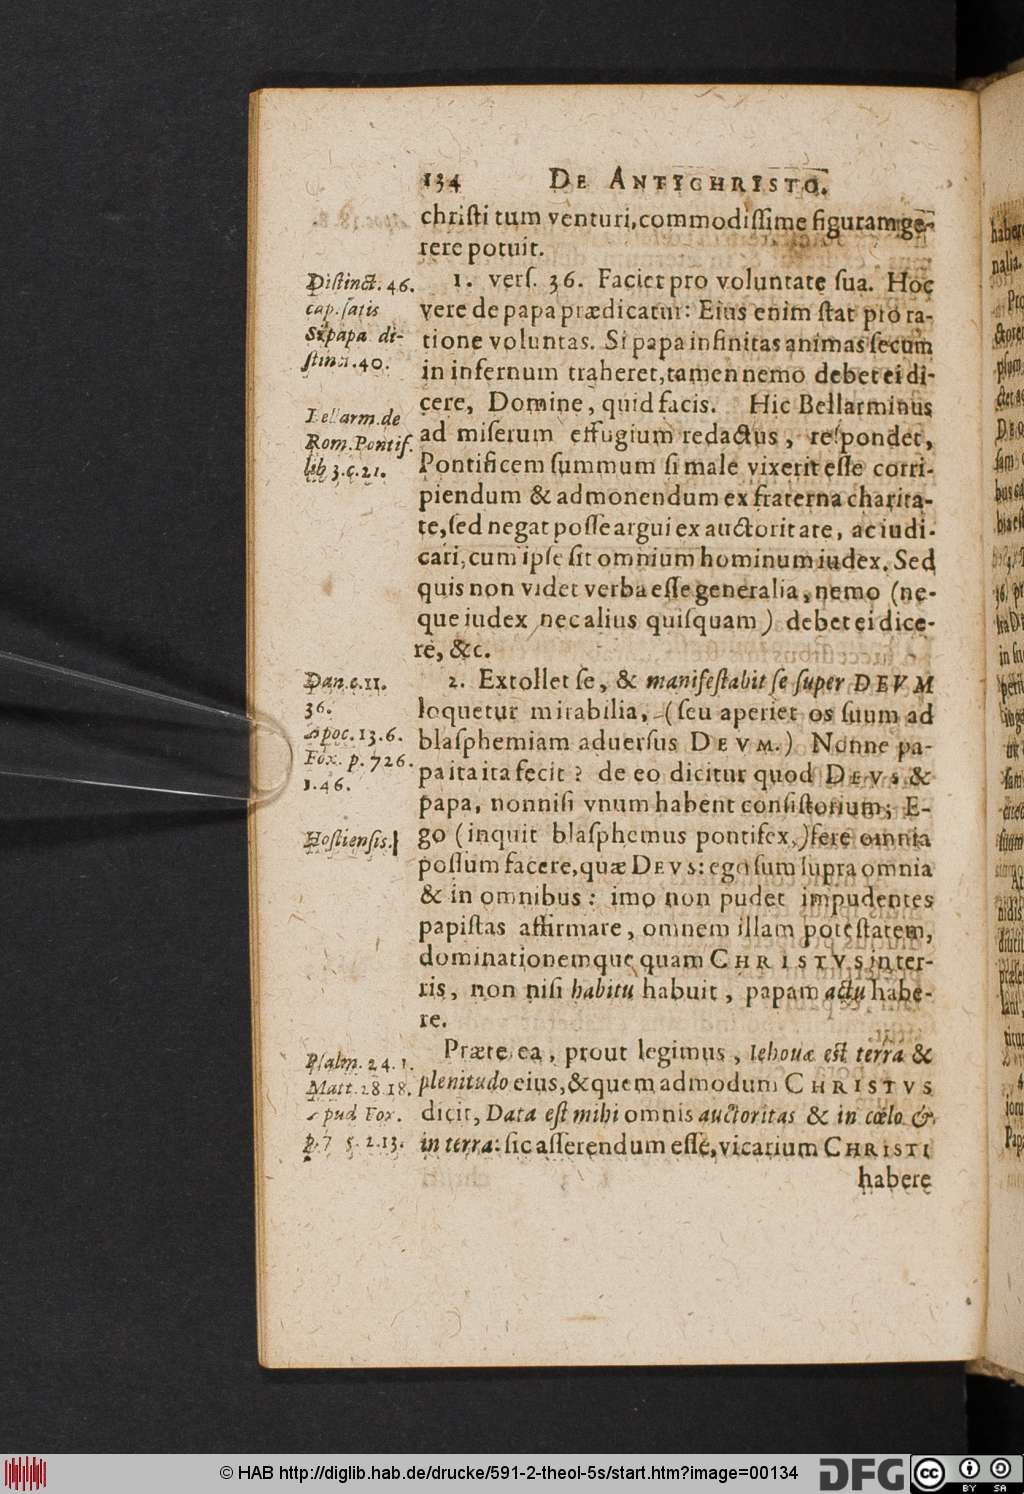 134 DE ANTICHRISTO.
chriſti tum venturi, commodiſſime figuram ge-
rere potuit.
1. verſ. 36. Faciet pro voluntate ſua. Hoc
vere de papa prædicatur: Eius enim ſtat pro ra-
tione voluntas. Si papa infinitas animas ſecum
in infernum traheret, tamen nemo debet ei di-
cere, Domine, quid facis. Hic Bellarminus
ad miſerum effugium redactus, reſpondet,
Pontificem ſummum ſi male vixerit eſſe corri-
piendum & admonendum ex fraterna charita-
te, ſed negat poſſe argui ex auctoritate, ac iudi-
cari, cum ipſe ſit omnium hominum iudex. Sed
quis non videt verba eſſe generalia, nemo (ne-
que iudex nec alius quiſquam) debet ei dice-
re, &c.
2. Extollet ſe, & manifeſtabit ſe ſuper DEVM
loquetur mirabilia, (ſeu aperiet os ſuum ad
blaſphemiam aduerſus DEVM.) Nonne pa-
pa ita ita fecit? de eo dicitur quod DEVS &
papa, nonniſi vnum habent conſiſtorium; E-
go (inquit blaſphemus pontifex,) fere omnia
poſſum facere, quæ DEVS: ego ſum ſupra omnia
& in omnibus: imo non pudet impudentes
papiſtas affirmare, omnem illam poteſtatem,
dominationemque quam CHRISTVS in ter-
ris, non niſi habitu habuit, papam actu habe-
re.
Præterea, prout legimus, Iehouæ eſt terra &
plenitudo eius, & quemadmodum CHRISTVS
dicit, Data eſt mihi omnis auctoritas & in cœlo &
in terra: ſic aſſerendum eſſe, vicarium CHRISTI
habere
Diſtinct. 46.
cap. ſatis
Si papa di-
ſtinct. 40.
Bellarm. de
Rom. Pontif.
lib 3. c. 21.
Dan. c. 11.
36.
Apoc. 13. 6.
Fox. p. 726.
1. 46.
Hoſtienſis.
Pſalm. 24. 1.
Matt. 28 18.
Apud Fox.
© HAB http://diglib.hab.de/drucke/591-2-theol-5s/start.htm?image=00134
DFG
cc
BY SA